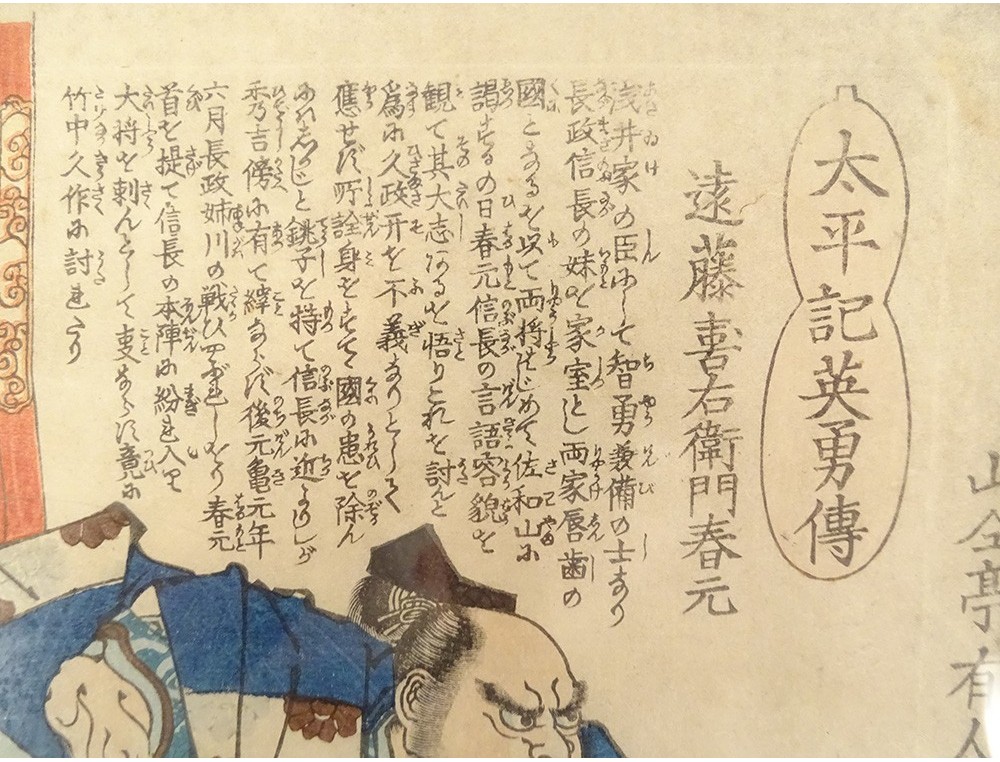 山々亭有人
太平記英勇傳
遠藤喜右衛門春元
浅井家の臣にして智勇兼備の士なり
長政信長の妹を家室とし両家唇歯の
國となるを以て両将はじめて佐和山に
謁するの日春元信長の言語容貌を
観て其大志あるを悟りこれを討んと
為に久政并を不義なりとして
應せず所詮身をすて國の患を除ん
にはしかじと銚子を持て信長に近よりしが
秀吉傍に有て縡ならず後元亀元年
六月長政姉川の戦ひ四ぶれしより春元
首を提て信長の本陣に紛れ入り
大将を刺んとして叓ならず竟に
竹中久作に討れたり